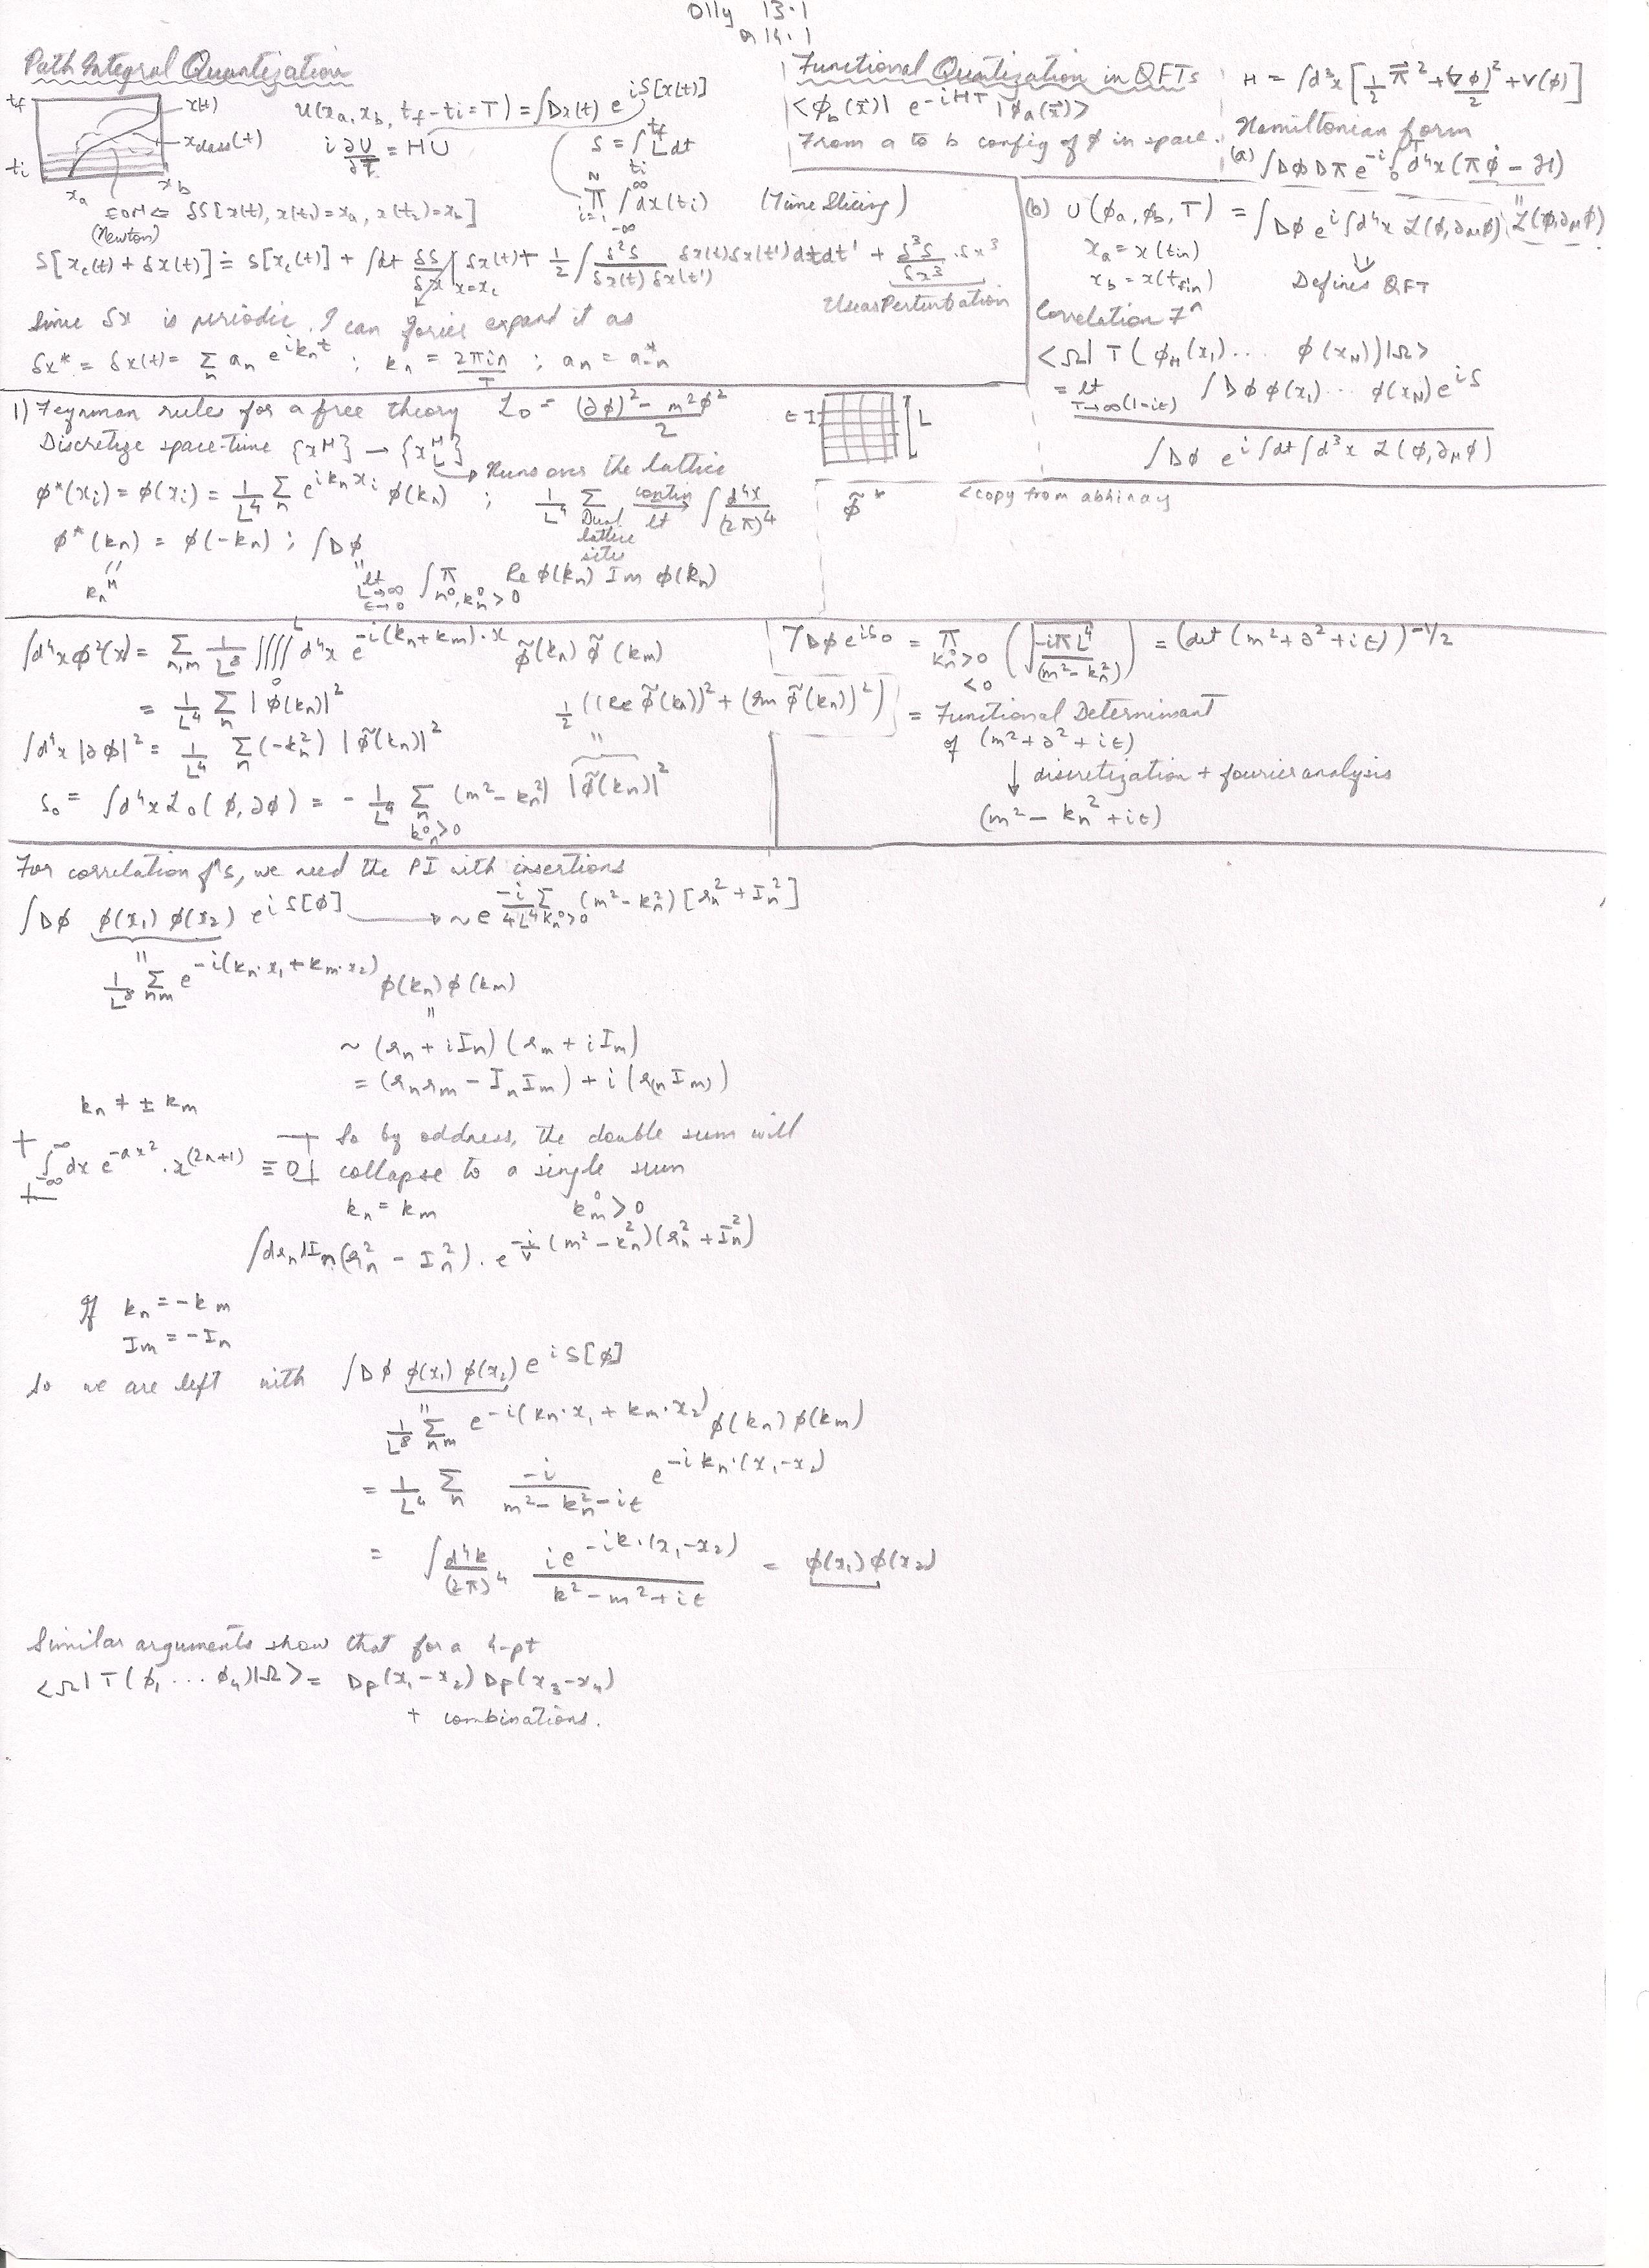 Olly 13.1
a 14.1
Path Integral Quantization
t_f
x(t)
x_class(t)
t_i
x_a x_b
U(x_a, x_b, t_f - t_i = T) = ∫Dx(t) e^{iS[x(t)]}
i ∂U/∂T = HU
S = ∫_{t_i}^{t_f} L dt
∏_{i=1}^{N} ∫_{-∞}^{∞} dx(t_i) (Time Slicing)
EOM ⇐ δS[x(t), x(t_1)=x_a, x(t_2)=x_b]
(Newton)
S[x_c(t) + δx(t)] ≐ S[x_c(t)] + ∫dt δS/δx |_{x=x_c} δx(t) + 1/2 ∫ δ²S/δx(t)δx(t') δx(t)δx(t') dt dt' + δ³S/δx³ · δx³
Uses Perturbation
Since δx is periodic, I can forier expand it as
δx* = δx(t) = Σ_n a_n e^{ik_n t} ; k_n = 2πin/T ; a_n = a*_{-n}
Functional Quantization in QFTs
<φ_b(x⃗)| e^{-iHT} |φ_a(x⃗)>
From a to b config of φ in space.
H = ∫d³x [1/2 π⃗² + (∇φ)²/2 + V(φ)]
Hamiltonian form
(a) ∫DφDπ e^{-i∫_0^T d⁴x (πφ̇ - ℋ)}
"
ℒ(φ,∂_μφ)
(b) U(φ_a, φ_b, T) = ∫Dφ e^{i∫d⁴x ℒ(φ,∂_μφ)}
x_a = x(t_in)
x_b = x(t_fin)
⇓
Defines QFT
Correlation Fⁿ
<Ω| T(φ_H(x_1)... φ(x_N))|Ω>
= lt_{T→∞(1-iε)} ∫Dφ φ(x_1)... φ(x_N) e^{iS}
∫Dφ e^{i∫dt∫d³x ℒ(φ,∂_μφ)}
1) Feynman rules for a free theory ℒ_0 = (∂φ)² - m²φ² / 2
ε L
Discretize space-time {x^μ} → {x^μ_L}
→ Runs over the lattice
φ*(x_i) = φ(x_i) = 1/L⁴ Σ_n e^{ik_n x_i} φ(k_n) ; 1/L⁴ Σ_{Dual lattice site} →^{contin}_{lt} ∫ d⁴x/(2π)⁴
φ̃* <copy from abhinay
φ*(k_n) = φ(-k_n) ; ∫Dφ
"
k_n^μ
"
lt_{L→∞, ε→0} ∫ ∏_{n⁰, k_n⁰>0} Re φ(k_n) Im φ(k_n)
∫d⁴x φ²(x) = Σ_{n,m} 1/L⁸ ∫∫∫∫_0^L d⁴x e^{-i(k_n+k_m)·x} φ̃(k_n) φ̃(k_m)
= 1/L⁴ Σ_n |φ(k_n)|²
∫d⁴x |∂φ|² = 1/L⁴ Σ_n (-k_n²) |φ̃(k_n)|²
1/2 ((Re φ̃(k_n))² + (Im φ̃(k_n))²)
"
S_0 = ∫d⁴x ℒ_0(φ,∂φ) = - 1/L⁴ Σ_{n, k_n⁰>0} (m² - k_n²) |φ̃(k_n)|²
∫Dφ e^{iS_0} = ∏_{k_n⁰>0, <0} (√(-iπL⁴/(m² - k_n²))) = (det(m² + ∂² + iε))^{-1/2}
= Functional Determinant
of (m² + ∂² + iε)
↓ discretization + fourier analysis
(m² - k_n² + iε)
For correlation fⁿs, we need the PI with insertions
∫Dφ φ(x_1) φ(x_2) e^{iS[φ]} → ~ e^{-i/4L⁴ Σ_{k_n⁰>0} (m² - k_n²)[r_n² + I_n²]}
"
1/L⁸ Σ_{nm} e^{-i(k_n·x_1 + k_m·x_2)} φ(k_n) φ(k_m)
"
~ (r_n + iI_n)(r_m + iI_m)
= (r_n r_m - I_n I_m) + i(r_(n I_m))
k_n ≠ ± k_m
∫_{-∞}^{∞} dx e^{-ax²} · x^{(2n+1)} ≡ 0
So by oddness, the double sum will
collapse to a single sum
k_n = k_m k_m⁰ > 0
∫dr_n dI_n (r_n² - I_n²) · e^{-i/V (m² - k_n²)(r_n² + I_n²)}
If k_n = -k_m
I_m = -I_n
So we are left with ∫Dφ φ(x_1) φ(x_2) e^{iS[φ]}
"
1/L⁸ Σ_{nm} e^{-i(k_n·x_1 + k_m·x_2)} φ(k_n) φ(k_m)
= 1/L⁴ Σ_n -i/(m² - k_n² - iε) e^{-ik_n·(x_1-x_2)}
= ∫ d⁴k/(2π)⁴ i e^{-ik·(x_1-x_2)} / (k² - m² + iε) = φ(x_1) φ(x_2)
Similar arguments show that for a 4-pt
<Ω| T(φ_1 ... φ_4)|Ω> = D_F(x_1-x_2) D_F(x_3-x_4)
+ combinations.